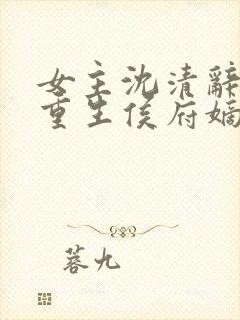 女主沈清辞
重生侯府嫡
蓉九